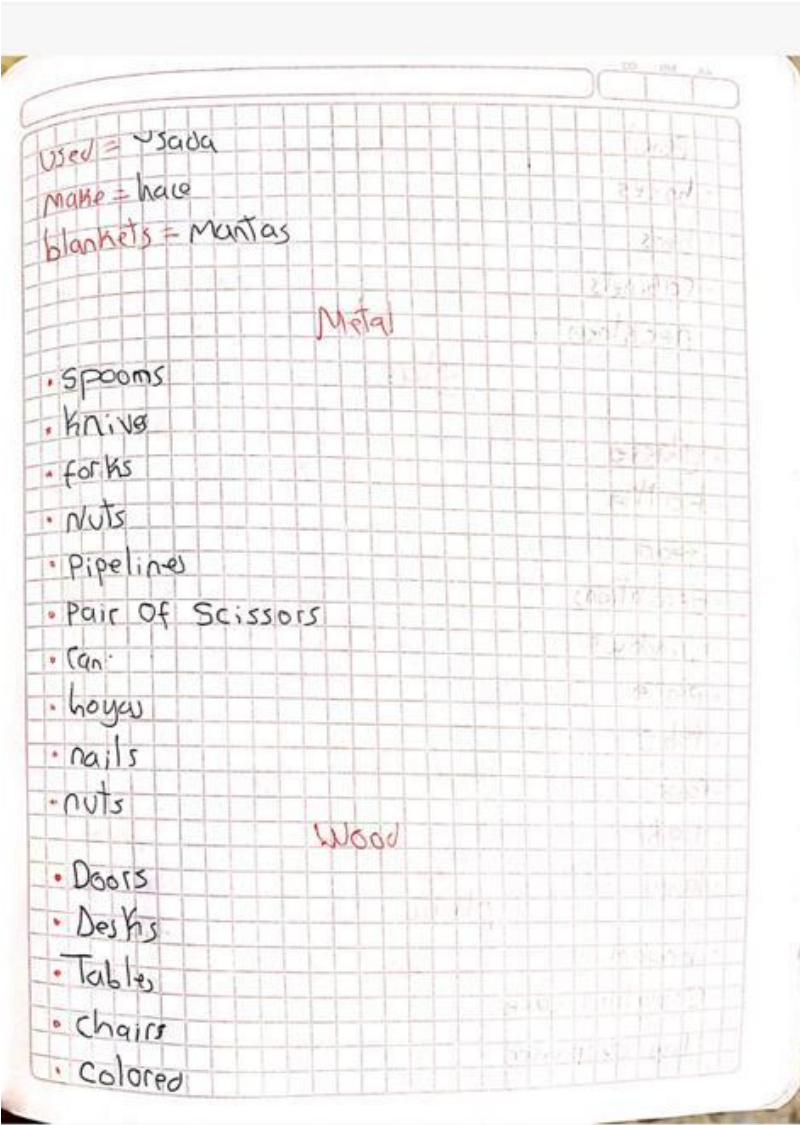 Used = Usada
Make = hace
blankets = Mantas
Metal
• Spooms
• knives
• forks
• Nuts
• Pipelines
• Pair Of Scissors
• Can
• hoyas
• nails
• nuts
Wood
• Doors
• Desks
• Tables
• Chairs
• Colored